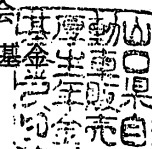 山口県自
動車販売
厚生年金
基金
会
基